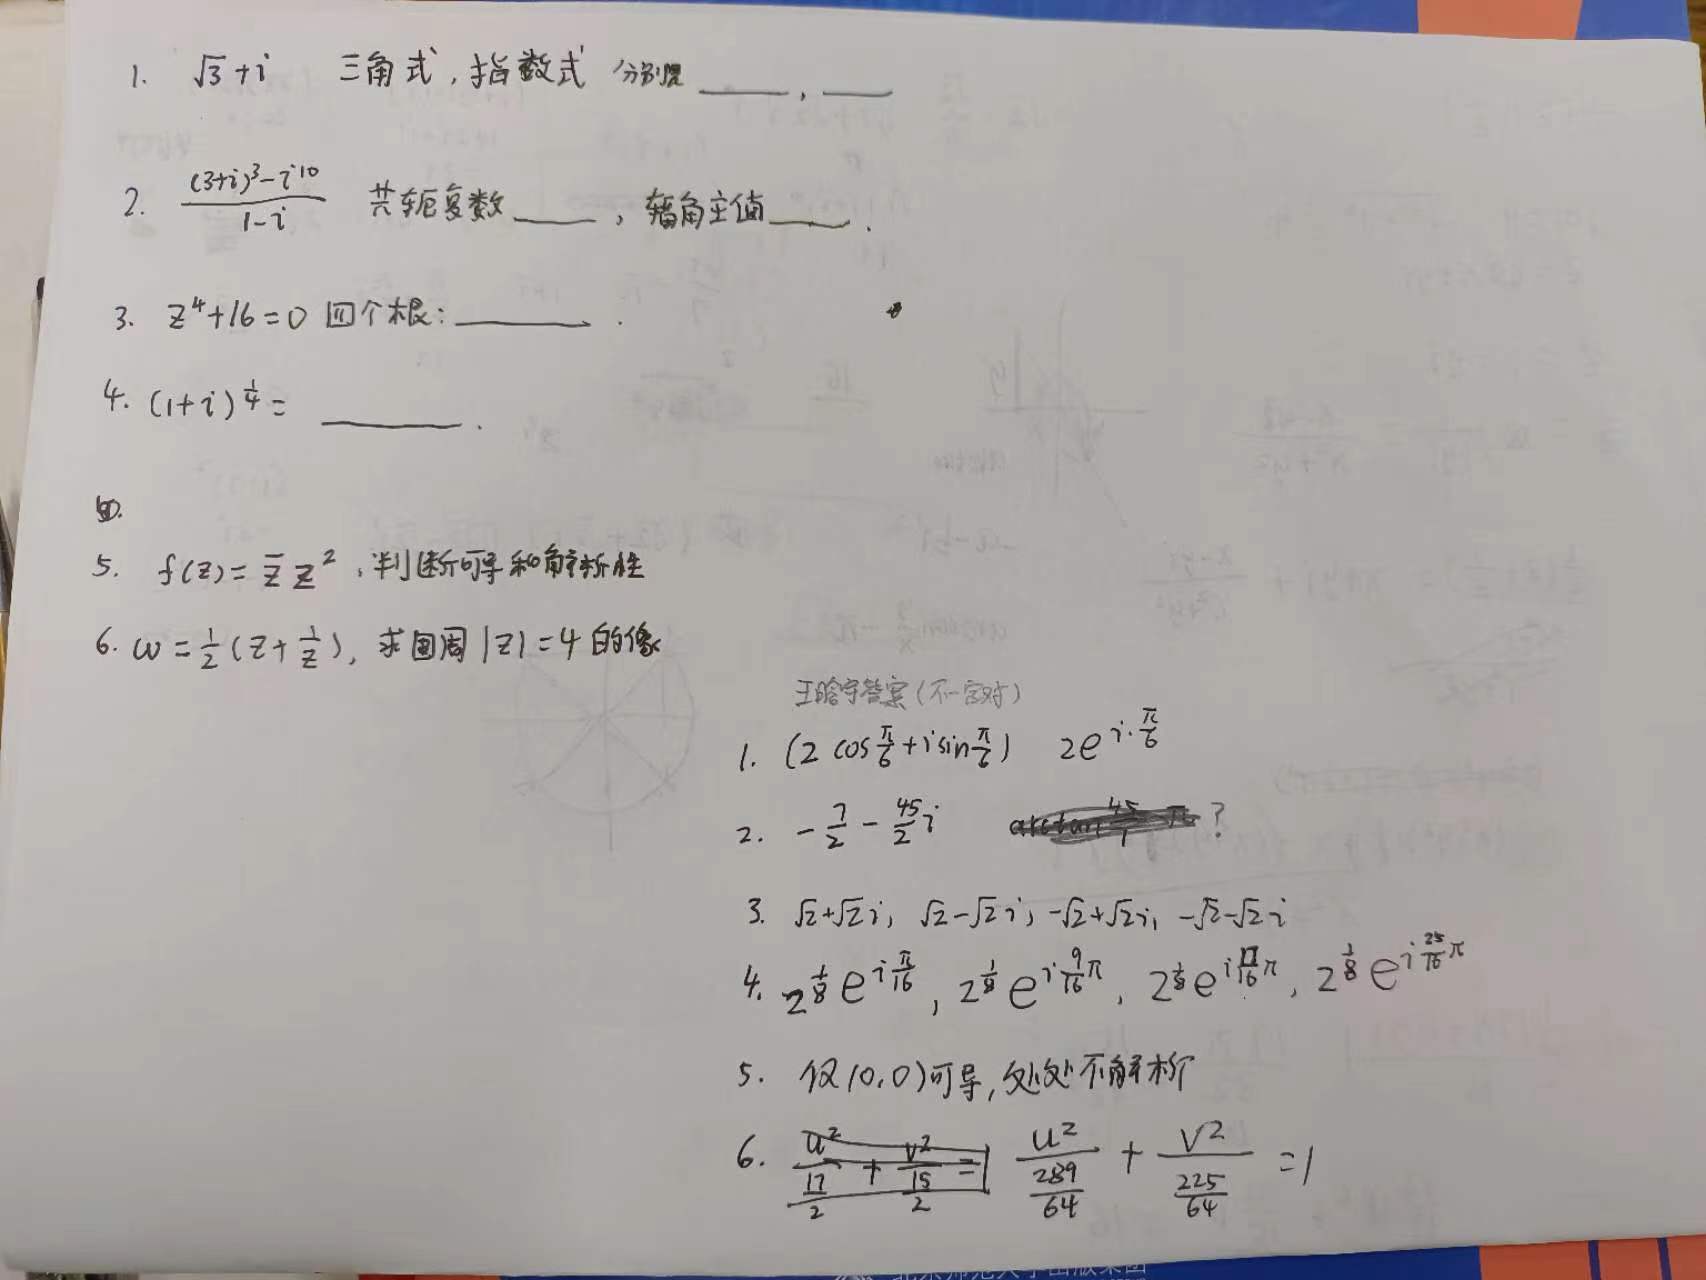 1. √3+i 三角式,指数式 分别是____,____
2. \frac{(3+i)^3-i^{10}}{1-i} 共轭复数____,辐角主值____.
3. z^4+16=0 四个根:____.
4. (1+i)^{\frac{1}{4}}=____.
5. f(z)=\bar{z}z^2,判断可导和解析性
6. ω=\frac{1}{2}(z+\frac{1}{z}),求圆周|z|=4的像
答案(不一定对)
1. (2 cos\frac{π}{6}+i sin\frac{π}{6}) 2e^{i·\frac{π}{6}}
2. -\frac{7}{2}-\frac{45}{2}i ?
3. √2+√2i, √2-√2i, -√2+√2i, -√2-√2i
4. 2^{\frac{1}{8}}e^{i\frac{π}{16}}, 2^{\frac{1}{8}}e^{i\frac{9}{16}π}, 2^{\frac{1}{8}}e^{i\frac{17}{16}π}, 2^{\frac{1}{8}}e^{i\frac{25}{16}π}
5. 仅(0,0)可导,处处不解析
6. \frac{u^2}{\frac{17}{2}}+\frac{v^2}{\frac{15}{2}}=1 \frac{u^2}{\frac{289}{64}}+\frac{v^2}{\frac{225}{64}}=1